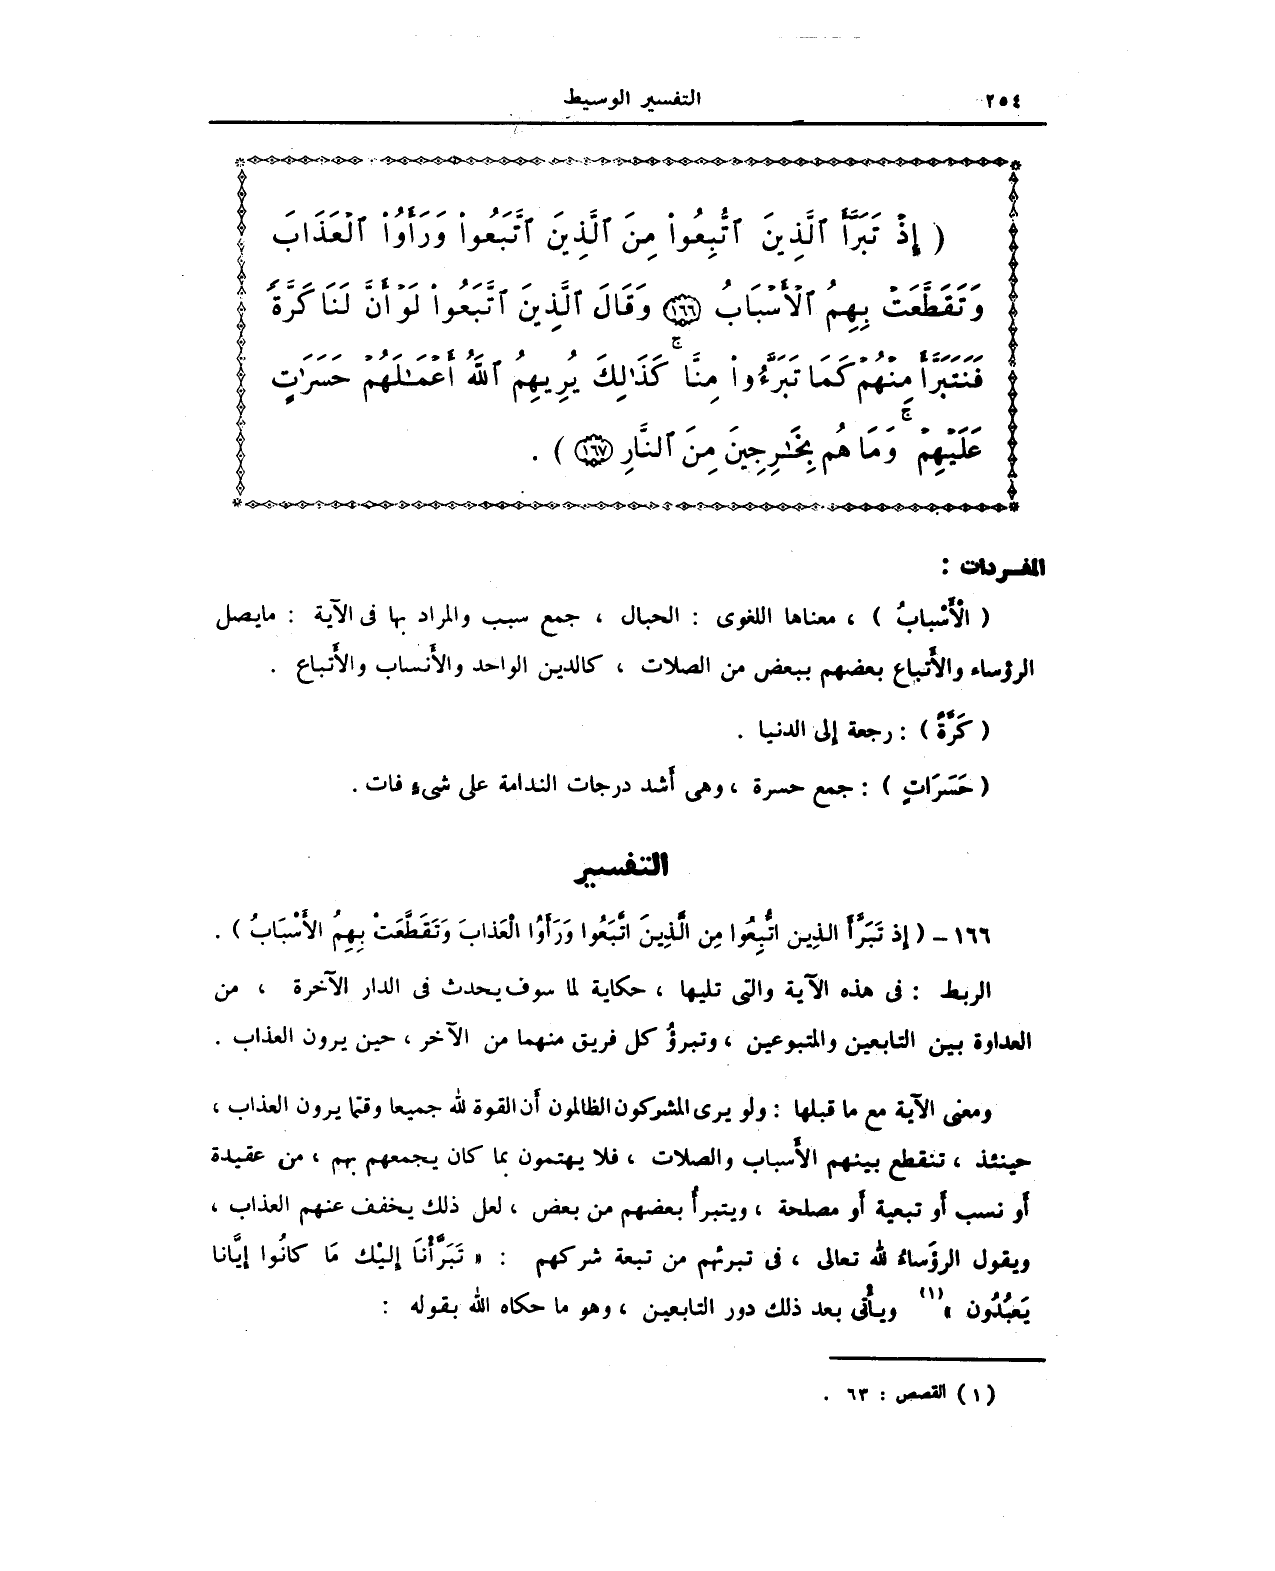 ٢٥٤
التفسير الوسيط
( إِذْ تَبَرَّأَ ٱلَّذِينَ ٱتُّبِعُوا۟ مِنَ ٱلَّذِينَ ٱتَّبَعُوا۟ وَرَأَوُا۟ ٱلْعَذَابَ
وَتَقَطَّعَتْ بِهِمُ ٱلْأَسْبَابُ ١٦٦ وَقَالَ ٱلَّذِينَ ٱتَّبَعُوا۟ لَوْ أَنَّ لَنَا كَرَّةً
فَنَتَبَرَّأَ مِنْهُمْ كَمَا تَبَرَّءُوا۟ مِنَّا ۚ كَذَٰلِكَ يُرِيهِمُ ٱللَّهُ أَعْمَـٰلَهُمْ حَسَرَٰتٍ
عَلَيْهِمْ ۚ وَمَا هُم بِخَـٰرِجِينَ مِنَ ٱلنَّارِ ١٦٧ ) .
المفـردات :
( الْأَسْبابُ ) ، معناها اللغوى : الحبال ، جمع سبب والمراد بها فى الآية : مايصل
الرؤساء والأَتباع بعضهم ببعض من الصلات ، كالدين الواحد والأَنساب والأَتباع .
( كَرَّةً ) : رجعة إلى الدنيا .
( حَسَرَاتٍ ) : جمع حسرة ، وهى أَشد درجات الندامة على شىءٍ فات .
التفسير
١٦٦ – ( إِذ تَبَرَّأَ الذِين اتُّبِعُوا مِن الَّذِينَ اتَّبَعُوا وَرَأَوُا الْعَذابَ وَتَقَطَّعَتْ بِهِمُ الأَسْبَابُ ) .
الربط : فى هذه الآية والتى تليها ، حكاية لما سوف يحدث فى الدار الآخرة ، من
العداوة بين التابعين والمتبوعين ، وتبرؤُ كل فريق منهما من الآخر ، حين يرون العذاب .
ومعنى الآية مع ما قبلها : ولو يرى المشركون الظالمون أَن القوة لله جميعا وقتما يرون العذاب ،
حينئذ ، تنقطع بينهم الأَسباب والصلات ، فلا يهتمون بما كان يجمعهم بهم ، من عقيدة
أَو نسب أَو تبعية أَو مصلحة ، ويتبرأُ بعضهم من بعض ، لعل ذلك يخفف عنهم العذاب ،
ويقول الرؤَساءُ لله تعالى ، فى تبرئهم من تبعة شركهم : « تَبَرَّأْنَا إِليْك مَا كانُوا إِيَّانا
يَعبُدُون »(١) ويأْتى بعد ذلك دور التابعين ، وهو ما حكاه الله بقوله :
(١) القصص : ٦٣ .